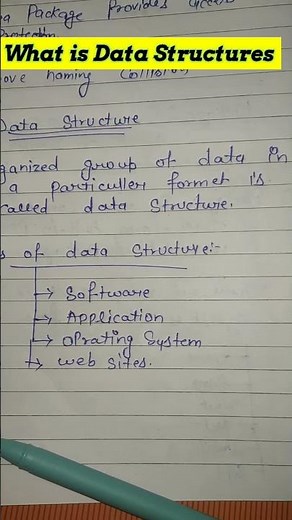 a Package Provides access
Protection
What is Data Structures
ove naming Collision
Data Structure
ganized group of data in
a particuller format is
called data Structure.
s of data Structure:-
Software
Application
Oprating System
web sites.